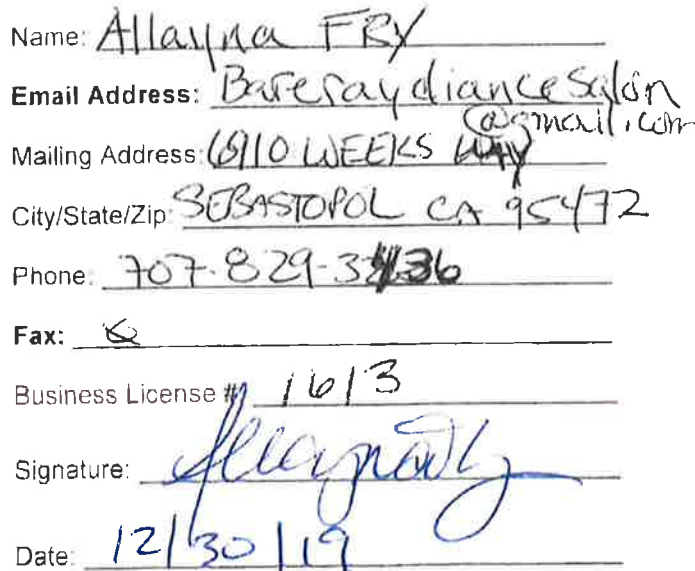 Name: Allayna FRY
Email Address: Bareraydiancesalon
@gmail.com
Mailing Address: 6910 WEEKS WAY
City/State/Zip: SEBASTOPOL CA 95472
Phone: 707-829-
Fax:
Business License # 1613
Signature:
Date: 12/30/19